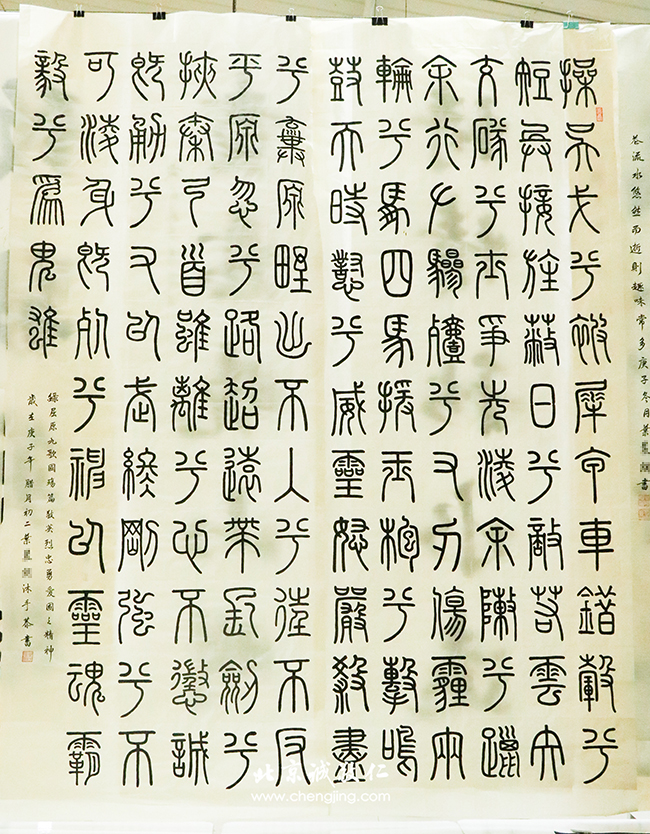 若流水悠然而逝則趣味常多庚子冬月葉書
操吳戈兮被犀甲車錯轂兮
短兵接旌蔽日兮敵若雲矢
交墜兮士爭先凌余陳兮躐
余行左驂殪兮右刃傷霾兩
輪兮馽四馬援玉枹兮擊鳴
鼓天時懟兮威靈怒嚴殺盡
兮棄原壄出不入兮往不反
平原忽兮路超遠帶長劍兮
挾秦弓首雖離兮心不懲誠
既勇兮又以武終剛強兮不
可凌身既死兮神以靈魂魄
毅兮為鬼雄
錄屈原九歌國殤篇敬英烈忠勇愛國之精神
歲在庚子年臘月初二葉沐手恭書
北京诚敬仁
www.chengjing.com